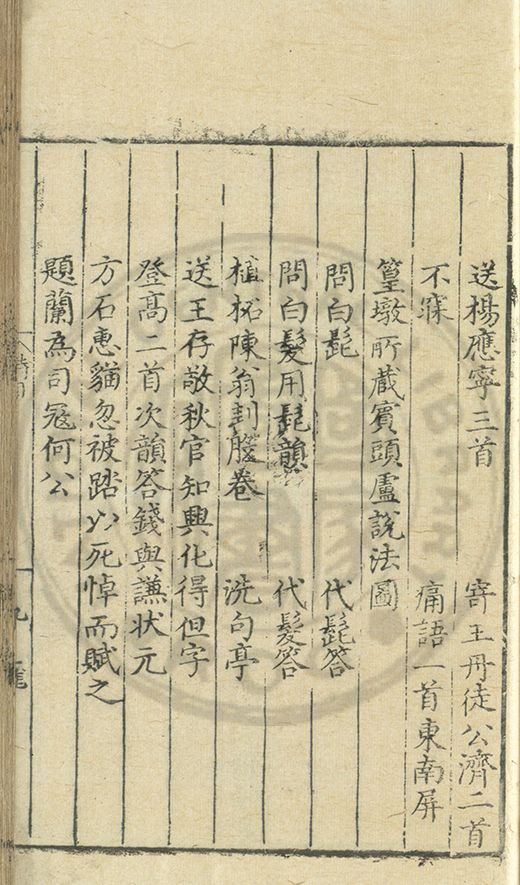 送楊應寧三首　寄王丹徒公濟二首
不寐　痛語一首東南屏
篁墩所藏賓頭盧說法圖
問白髭　代髭答
問白髮用髭韻　代髮答
植柘陳翁割股卷　洗句亭
送王存敬秋官知興化得但字
登高二首次韻答錢與謙狀元
方石惠貓忽被踏以死悼而賦之
題蘭為司寇何公